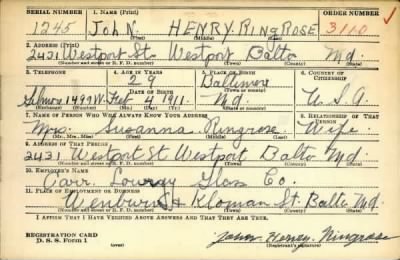 SERIAL NUMBER 1. NAME (Print) ORDER NUMBER
1245 John HENRY RINGROSE 3110
(First) (Middle) (Last)
2. ADDRESS (Print)
2431 Westport St Westport Balto Md.
(Number and street or R. F. D. number) (Town) (County) (State)
3. TELEPHONE 4. AGE IN YEARS 5. PLACE OF BIRTH 6. COUNTRY OF CITIZENSHIP
29 Baltimore
DATE OF BIRTH (Town or county)
Gilmor 1499W Feb 4 1911 Md. U. S. A
(Exchange) (Number) (Mo.) (Day) (Yr.) (State or country)
7. NAME OF PERSON WHO WILL ALWAYS KNOW YOUR ADDRESS 8. RELATIONSHIP OF THAT PERSON
Mrs. Susanna Ringrose Wife
(Mr., Mrs., Miss) (First) (Middle) (Last)
9. ADDRESS OF THAT PERSON
2431 Westport St Westport Balto Md.
(Number and street or R. F. D. number) (Town) (County) (State)
10. EMPLOYER'S NAME
Carr. Lowrey Glass Co.
11. PLACE OF EMPLOYMENT OR BUSINESS
& Kloman St. Balto Md.
(Number and street or R. F. D. number) (Town) (County) (State)
I AFFIRM THAT I HAVE VERIFIED ABOVE ANSWERS AND THAT THEY ARE TRUE.
REGISTRATION CARD
D. S. S. Form 1 (over) John Henry Ringrose
(Registrant's signature)